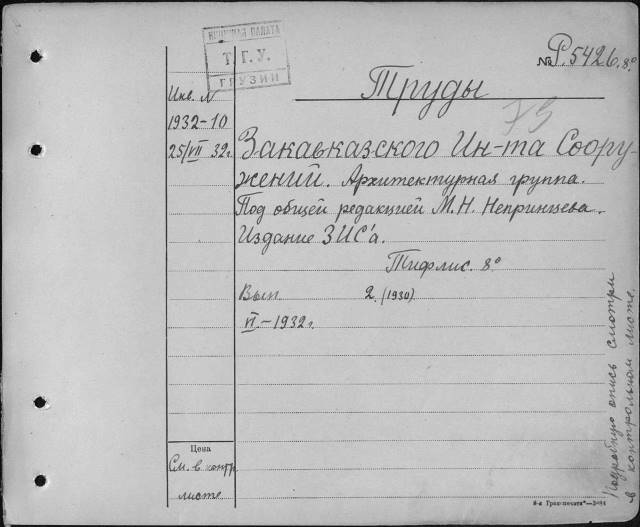 КНИЖНАЯ ПАЛАТА
Т. Г. У.
ГРУЗИИ
№ Р. 5426. 8°
Труды
75
Инв. №
1932-10
25/VII 32г.
Закавказского Ин-та Соору-
жений. Архитектурная группа.
Под общей редакцией М. Н. Непринцева.
Издание ЗИС'а.
Тифлис. 8°
Вып. 2. (1930).
VI. - 1932 г.
Цена
См. в контр.
листе
Подробную опись смотри
в контрольном листе.